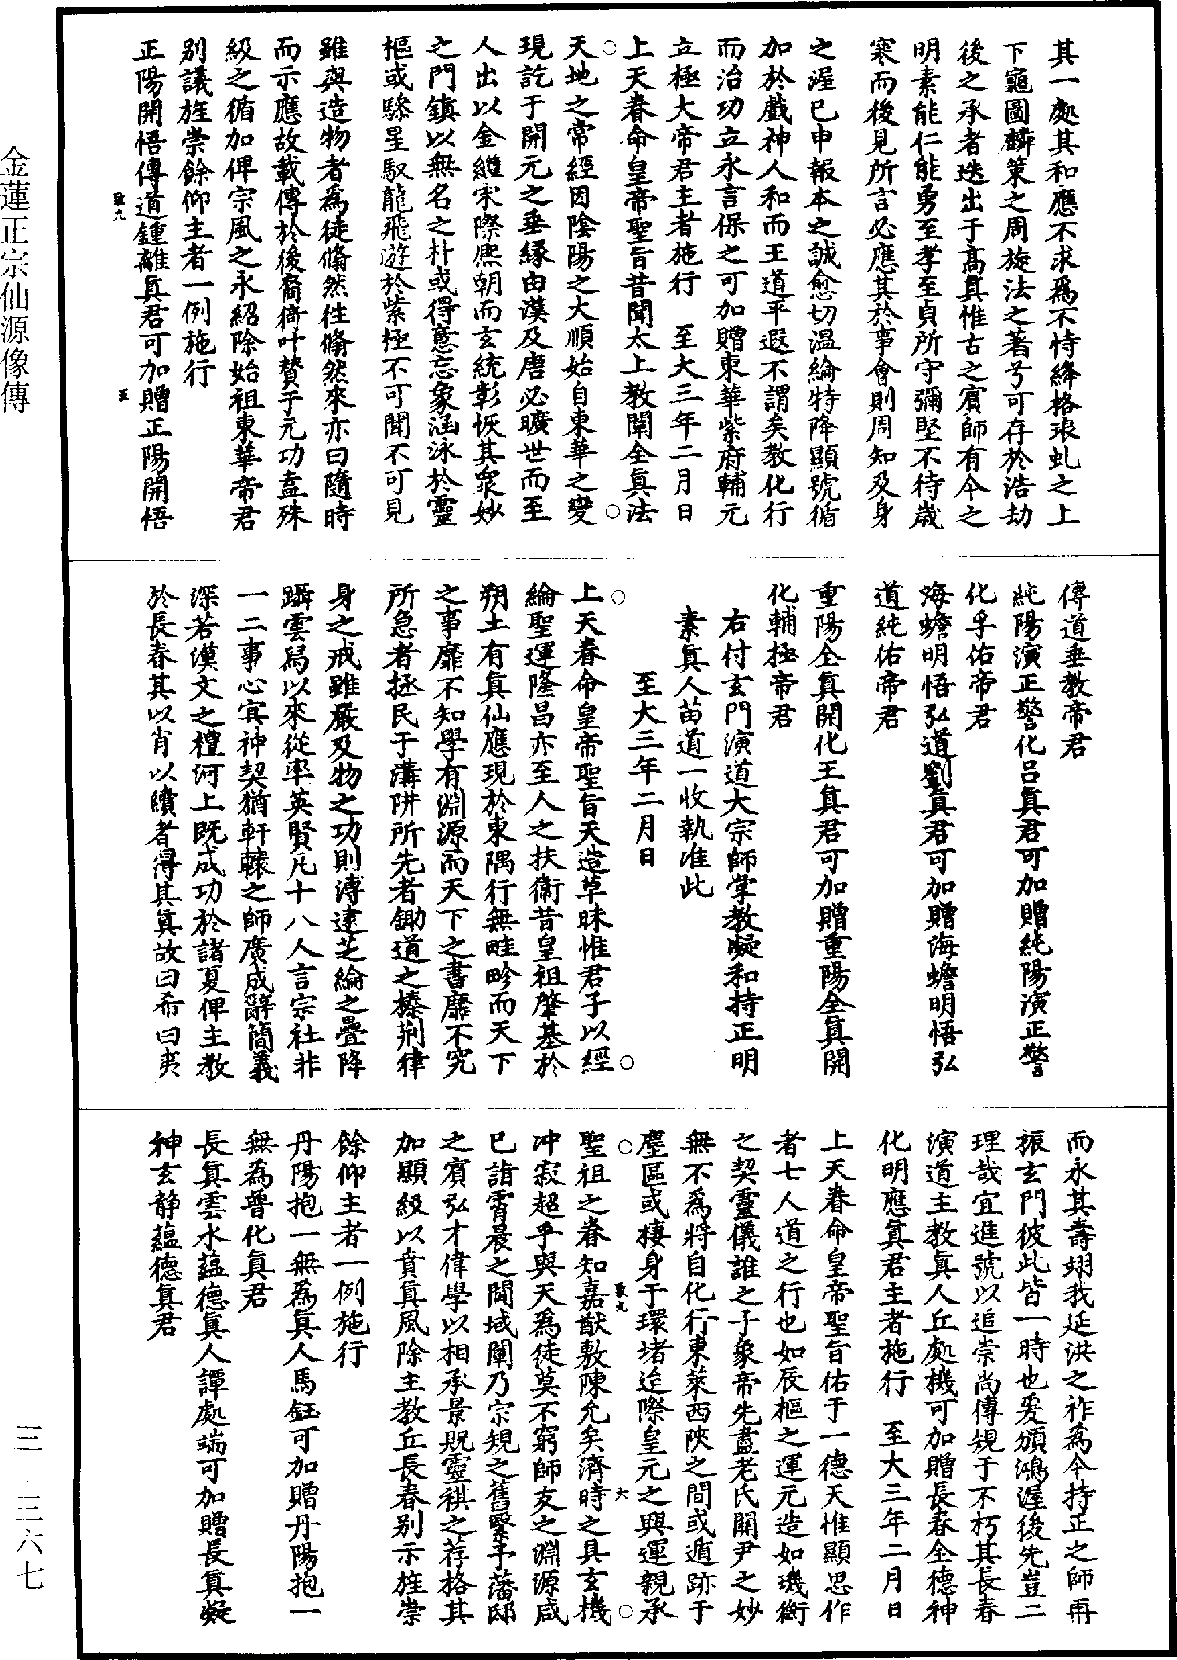 金蓮正宗仙源像傳
三一三六七
其一處其和應不求爲不恃絳格琅虬之上
下龜圖麟策之周旋法之著兮可存於浩劫
後之承者迭出于高眞惟古之賓師有今之
明素能仁能勇至孝至貞所守彌堅不待歲
寒而後見所言必應其於事會則周知及身
之渥已申報本之誠愈切溫綸特降顯號循
加於戲神人和而王道平遐不謂矣教化行
而治功立永言保之可加贈東華紫府輔元
立極大帝君主者施行　至大三年二月日
上天眷命皇帝聖旨昔聞太上教闡全眞法
天地之常經因陰陽之大順始自東華之變
現訖于開元之垂緣由漢及唐必曠世而至
人出以金繼宋際熙朝而玄統彰恢其衆妙
之門鎮以無名之朴或得意忘象涵泳於靈
樞或驂星馭龍飛遊於紫極不可聞不可見
雖與造物者爲徒翛然性翛然來亦曰隨時
而示應故載傳於後裔裔叶贊于元功盍殊
級之循加俾宗風之永紹除始祖東華帝君
別議旌崇餘仰主者一例施行
正陽開悟傳道鍾離眞君可加贈正陽開悟
致九
五
傳道垂教帝君
純陽演正警化呂眞君可加贈純陽演正警
化孚佑帝君
海蟾明悟弘道劉眞君可加贈海蟾明悟弘
道純佑帝君
重陽全眞開化王眞君可加贈重陽全眞開
化輔極帝君
右付玄門演道大宗師掌教凝和持正明
素眞人苗道一收執准此
至大三年二月日
上天眷命皇帝聖旨天造草昧惟君子以經
綸聖運隆昌亦至人之扶衛昔皇祖肇基於
朔土有眞仙應現於東隅行無畦畛而天下
之事靡不知學有淵源而天下之書靡不究
所急者拯民于溝阱所先者鋤道之榛荊律
身之戒雖嚴及物之功則溥逮芝綸之疊降
躡雲舄以來從率英賢凡十八人言宗社非
一二事心冥神契猶軒轅之師廣成辭簡義
深若漢文之禮河上既成功於諸夏俾主教
於長春其以肖以贖者得其眞故曰希曰夷
而永其壽翊我延洪之祚爲今持正之師再
振玄門彼此皆一時也爰頒鴻渥後先豈二
理哉宜進號以追崇尚傳規于不朽其長春
演道主教眞人丘處機可加贈長春全德神
化明應眞君主者施行　至大三年二月日
上天眷命皇帝聖旨佑于一德天惟顯思作
者七人道之行也如辰樞之運元造如璣衡
之契靈儀誰之子象帝先盡老氏關尹之妙
無不爲將自化行東萊西陝之間或遁跡于
塵區或棲身于環堵迨際皇元之興運親承
致九
六
聖祖之眷知嘉猷敷陳允矣濟時之具玄機
冲寂超乎與天爲徒莫不窮師友之淵源咸
已詣霄晨之閫域闡乃宗規之舊繄予藩邸
之賓弘才偉學以相承景貺靈祺之荐格其
加顯級以賁眞風除主教丘長春別示旌崇
餘仰主者一例施行
丹陽抱一無爲眞人馬鈺可加贈丹陽抱一
無爲普化眞君
長眞雲水蘊德眞人譚處端可加贈長眞凝
神玄靜蘊德眞君